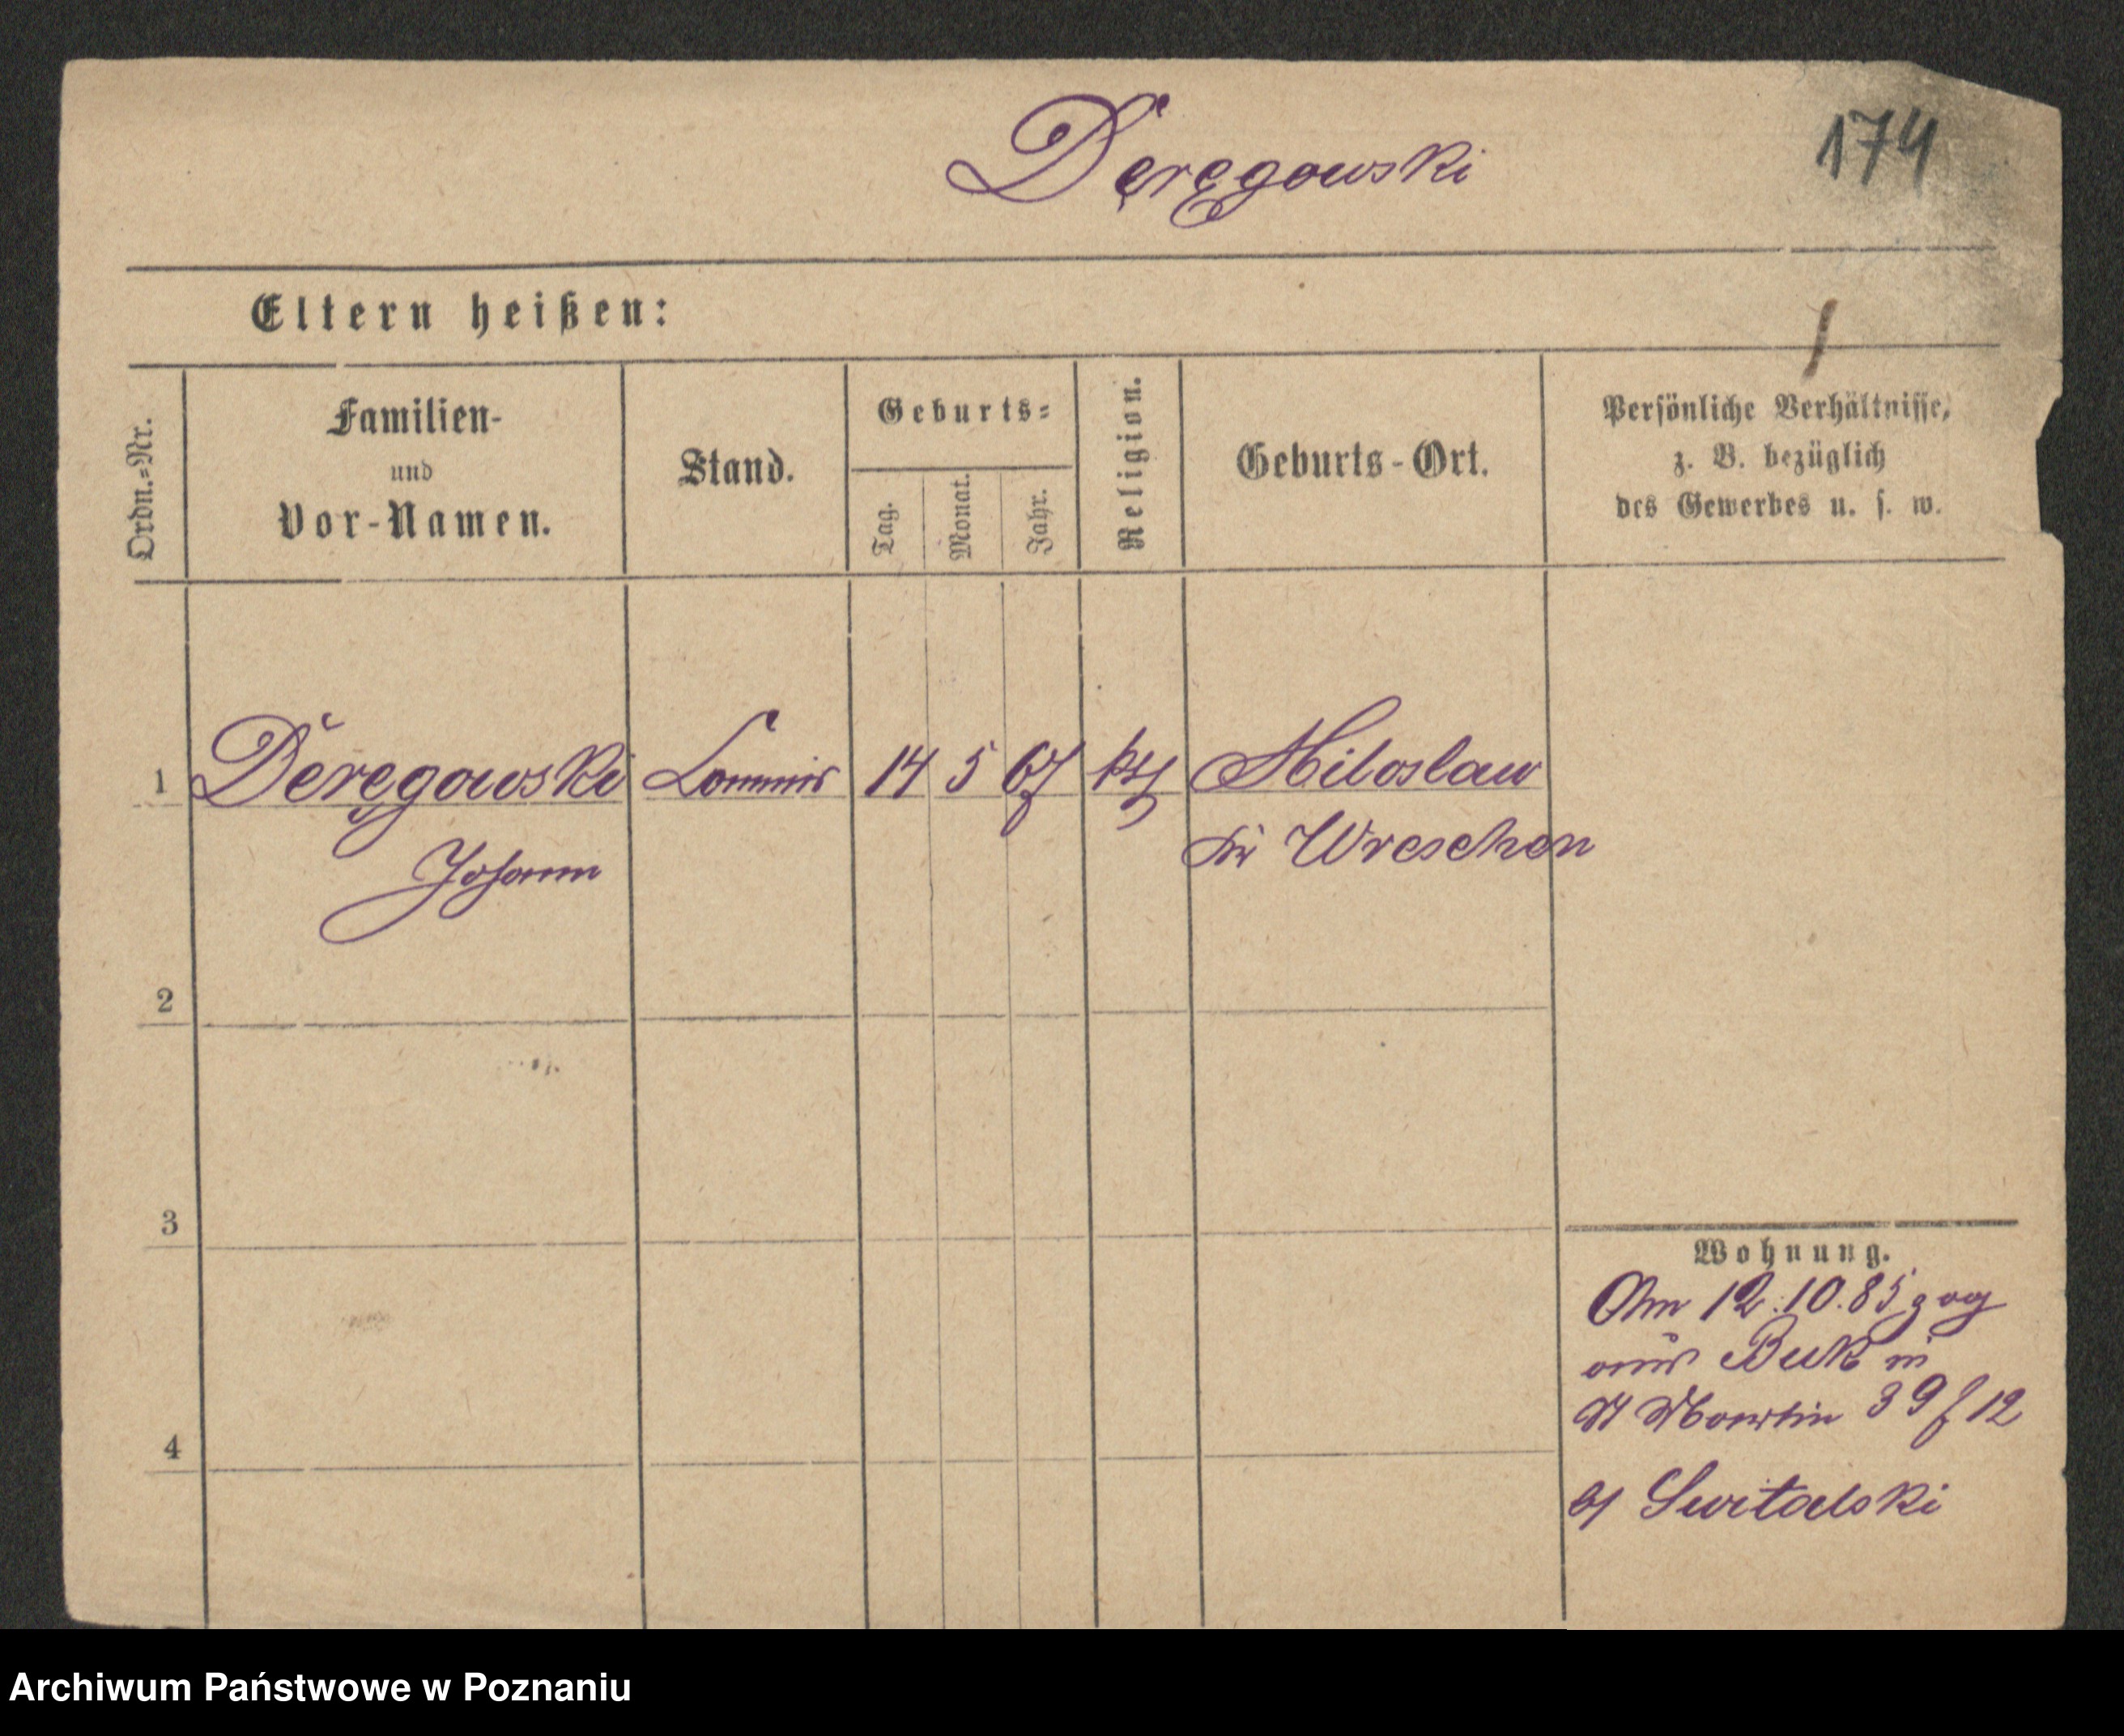 Deręgowski
174
Eltern heißen:
Ordn.=Nr.
Familien-
und
Vor-Namen.
Stand.
Geburts=
Tag.
Monat.
Jahr.
Religion.
Geburts-Ort.
Persönliche Verhältnisse,
z. B. bezüglich
des Gewerbes u. s. w.
1 Deręgowski Commis 14 5 67 kth Miloslaw
Johann
Kr Wreschen
2
3
4
Wohnung.
Am 12.10.85 zog
aus Buk in
St Martin 39 f 12
b/ Switalski
Archiwum Państwowe w Poznaniu